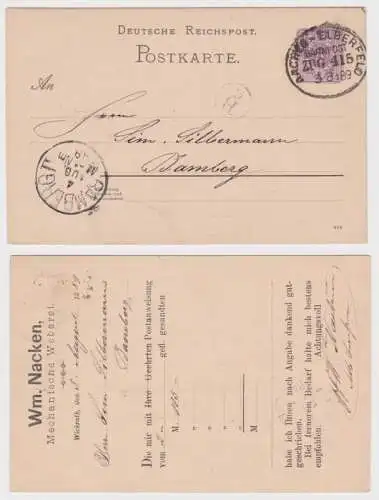 DEUTSCHE REICHSPOST.
POSTKARTE.
An
Herrn
Sim. Silbermann
Bamberg
AACHEN-ELBERFELD
BAHNPOST
ZUG 415
BAMBERG II
4
AUG
Wm. Nacken,
Mechanische Weberei.
Wickrath, den
August 1889
Herrn Sim. Silbermann
Bamberg
Die mir mit Ihrer geehrten Postanweisung
vom ged. gesandten
M.
" " "
M.
habe ich Ihnen nach Angabe dankend gut-
geschrieben.
Bei fernerem Bedarf halte mich bestens
empfohlen.
Achtungsvoll